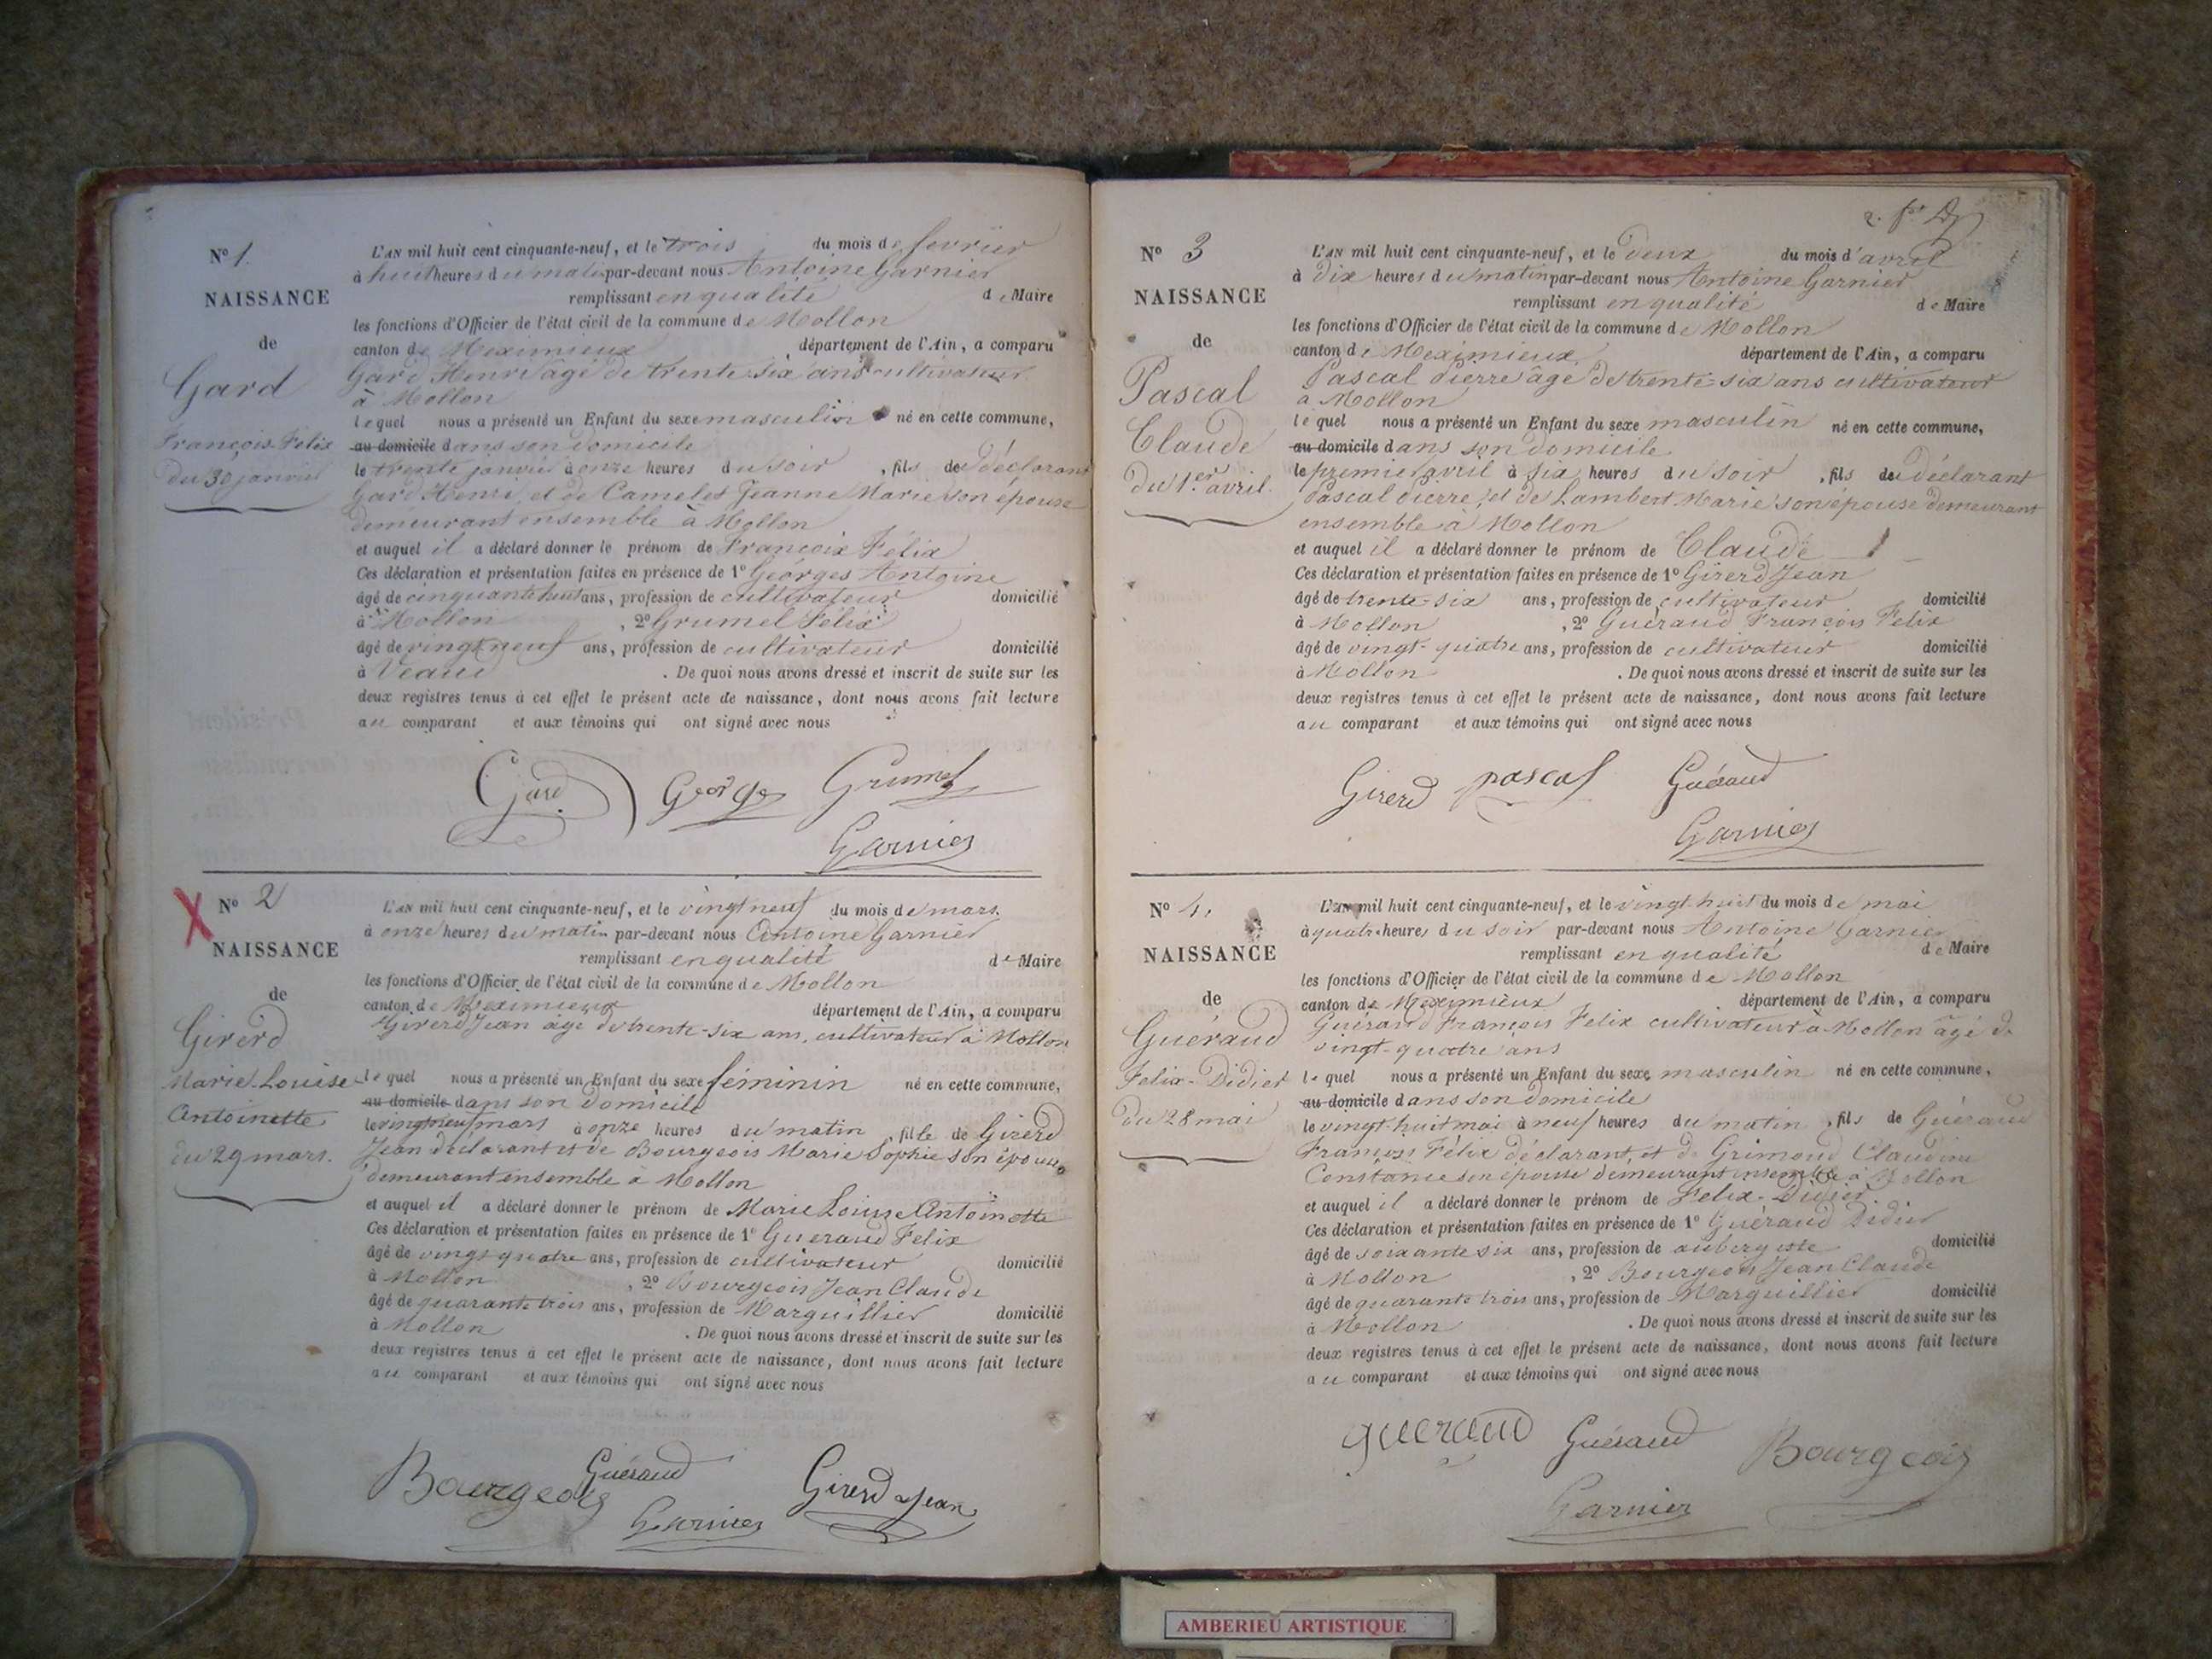 N° 1.
NAISSANCE
de
Gard
François Félix
du 30 janvier
L'AN mil huit cent cinquante-neuf, et le trois du mois de février
à huit heures du matin par-devant nous Antoine Garnier
remplissant en qualité de Maire
les fonctions d'Officier de l'état civil de la commune de Mollon
canton de Meximieux département de l'Ain, a comparu
Gard Henri âgé de trente-six ans cultivateur
à Mollon
lequel nous a présenté un Enfant du sexe masculin né en cette commune,
au domicile dans son domicile
le trente janvier à onze heures du soir, fils de déclarant
Gard Henri, et de Camelet Jeanne Marie son épouse
demeurant ensemble à Mollon
et auquel il a déclaré donner le prénom de François Félix
Ces déclaration et présentation faites en présence de 1° Georges Antoine
âgé de cinquante huit ans, profession de cultivateur domicilié
à Mollon, 2° Grumel Félix
âgé de vingt neuf ans, profession de cultivateur domicilié
à . De quoi nous avons dressé et inscrit de suite sur les
deux registres tenus à cet effet le présent acte de naissance, dont nous avons fait lecture
au comparant et aux témoins qui ont signé avec nous
Gard George Grumel
Garnier
N° 2
NAISSANCE
de
Girerd
Marie-Louise
Antoinette
du 29 mars.
L'AN mil huit cent cinquante-neuf, et le vingt neuf du mois de mars
à onze heures du matin par-devant nous Antoine Garnier
remplissant en qualité de Maire
les fonctions d'Officier de l'état civil de la commune de Mollon
canton de Meximieux département de l'Ain, a comparu
Girerd Jean âgé de trente-six ans, cultivateur à Mollon
lequel nous a présenté un Enfant du sexe féminin né en cette commune,
au domicile dans son domicile
le vingt neuf mars à onze heures du matin, fille de Girerd
Jean déclarant et de Bourgeois Marie Sophie son épouse
demeurant ensemble à Mollon
et auquel il a déclaré donner le prénom de Marie Louise Antoinette
Ces déclaration et présentation faites en présence de 1° Gueraud Felix
âgé de vingt quatre ans, profession de cultivateur domicilié
à Mollon, 2° Bourgeois Jean Claude
âgé de quarante trois ans, profession de Marguillier domicilié
à Mollon. De quoi nous avons dressé et inscrit de suite sur les
deux registres tenus à cet effet le présent acte de naissance, dont nous avons fait lecture
au comparant et aux témoins qui ont signé avec nous
Bourgeois Guéraud Girerd Jean
Garnier
N° 3
NAISSANCE
de
Pascal
Claude
du 1.er avril.
L'AN mil huit cent cinquante-neuf, et le deux du mois d'avril
à dix heures du matin par-devant nous Antoine Garnier
remplissant en qualité de Maire
les fonctions d'Officier de l'état civil de la commune de Mollon
canton de Meximieux département de l'Ain, a comparu
Pascal Pierre âgé de trente-six ans cultivateur
à Mollon
lequel nous a présenté un Enfant du sexe masculin né en cette commune,
au domicile dans son domicile
le premier avril à six heures du soir, fils du déclarant
Pascal Pierre, et de Lambert Marie son épouse demeurant
ensemble à Mollon
et auquel il a déclaré donner le prénom de Claude
Ces déclaration et présentation faites en présence de 1° Girerd Jean
âgé de trente-six ans, profession de cultivateur domicilié
à Mollon, 2° Guéraud François Felix
âgé de vingt-quatre ans, profession de cultivateur domicilié
à Mollon. De quoi nous avons dressé et inscrit de suite sur les
deux registres tenus à cet effet le présent acte de naissance, dont nous avons fait lecture
au comparant et aux témoins qui ont signé avec nous
Girerd pascal Guéraud
Garnier
N° 4.
NAISSANCE
de
Guéraud
Felix-Didier
du 28 mai
L'AN mil huit cent cinquante-neuf, et le vingt huit du mois de mai
à quatre heures du soir par-devant nous Antoine Garnier
remplissant en qualité de Maire
les fonctions d'Officier de l'état civil de la commune de Mollon
canton de Meximieux département de l'Ain, a comparu
Guéraud François Felix cultivateur à Mollon âgé de
vingt-quatre ans
lequel nous a présenté un Enfant du sexe masculin né en cette commune,
au domicile dans son domicile
le vingt-huit mai à neuf heures du matin, fils de Guéraud
François Félix déclarant, et de Grimond Claudine
Constance son épouse demeurant ensemble à Mollon
et auquel il a déclaré donner le prénom de Felix-Didier
Ces déclaration et présentation faites en présence de 1° Guéraud Didier
âgé de soixante six ans, profession de aubergiste domicilié
à Mollon, 2° Bourgeois Jean Claude
âgé de quarante trois ans, profession de Marguillier domicilié
à Mollon. De quoi nous avons dressé et inscrit de suite sur les
deux registres tenus à cet effet le présent acte de naissance, dont nous avons fait lecture
au comparant et aux témoins qui ont signé avec nous
gueraud Guéraud Bourgeois
Garnier
AMBERIEU ARTISTIQUE